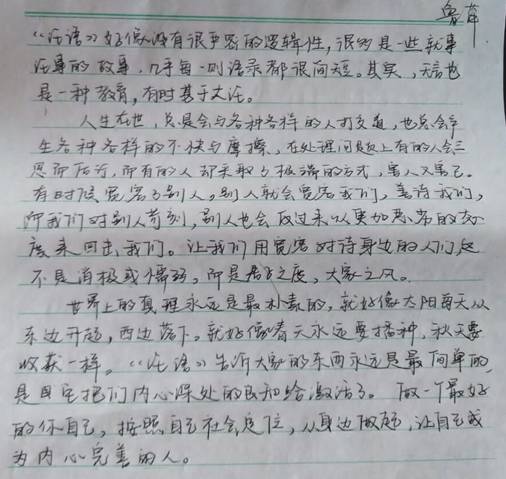 鲁苒
《论语》好像没有很严密的逻辑性，很多是一些就事
论事的故事，几乎每一则语录都很简短。其实，无言也
是一种教育，有时甚于大论。
人生在世，总是会与各种各样的人打交道，也总会产
生各种各样的不快与摩擦，在处理问题上有的人会三
思而后行，而有的人却采取了极端的方式，害人又害己。
有时候宽容了别人，别人就会宽容我们，善待我们，
而我们对别人苛刻，别人也会反过来以更加恶劣的态
度来回击我们。让我们用宽容对待身边的人们这
不是消极或懦弱，而是君子之度，大家之风。
世界上的真理永远是最朴素的，就好像太阳每天从
东边升起，西边落下。就好像春天永远要播种，秋天要
收获一样。《论语》告诉大家的东西永远是最简单的
是因它把们内心深处的良知给激活了。做一个最好
的你自己，按照自己社会定位，从身边做起，让自己成
为内心完善的人。